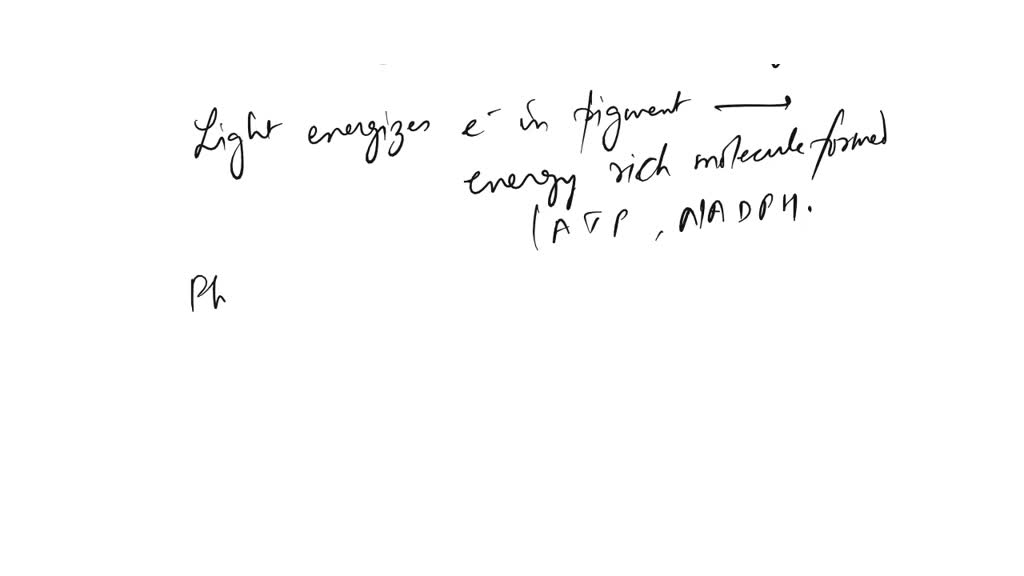 Light energizes e⁻ in pigment ⟶
energy rich molecule formed
(ATP, NADPH.
Ph